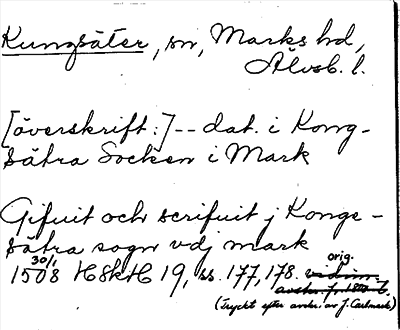 Kungsäter, sn, Marks hd,
Älvsb. l.
[överskrift:] -- dat. i Kong-
sätra Socken i Mark
Gifuit och scrifuit j Kongs-
sätra sogn vdj mark
30/1 orig.
1508 HSkH 19, ss. 177, 178. vidim.
avskr. fr. 1800-t.
(Tryckt efter avskr. av J. Carlmark)